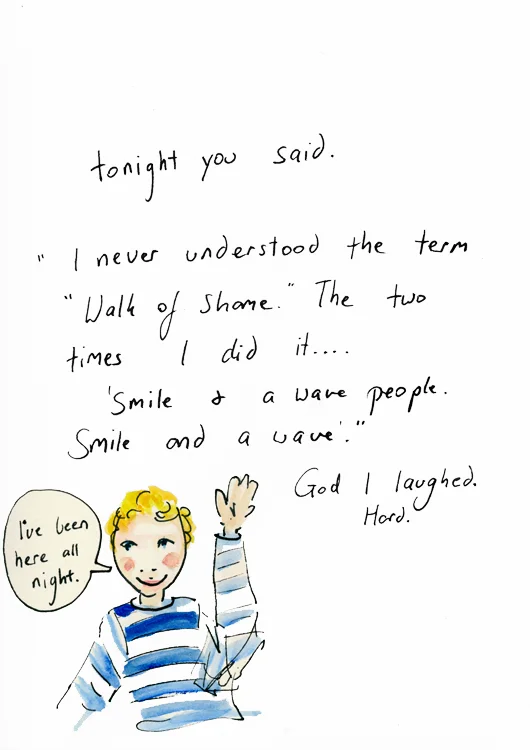 tonight you said.
" I never understood the term
"Walk of Shame." The two
times I did it....
'Smile & a wave people.
Smile and a wave'."
God I laughed.
Hard.
I've been
here all
night.